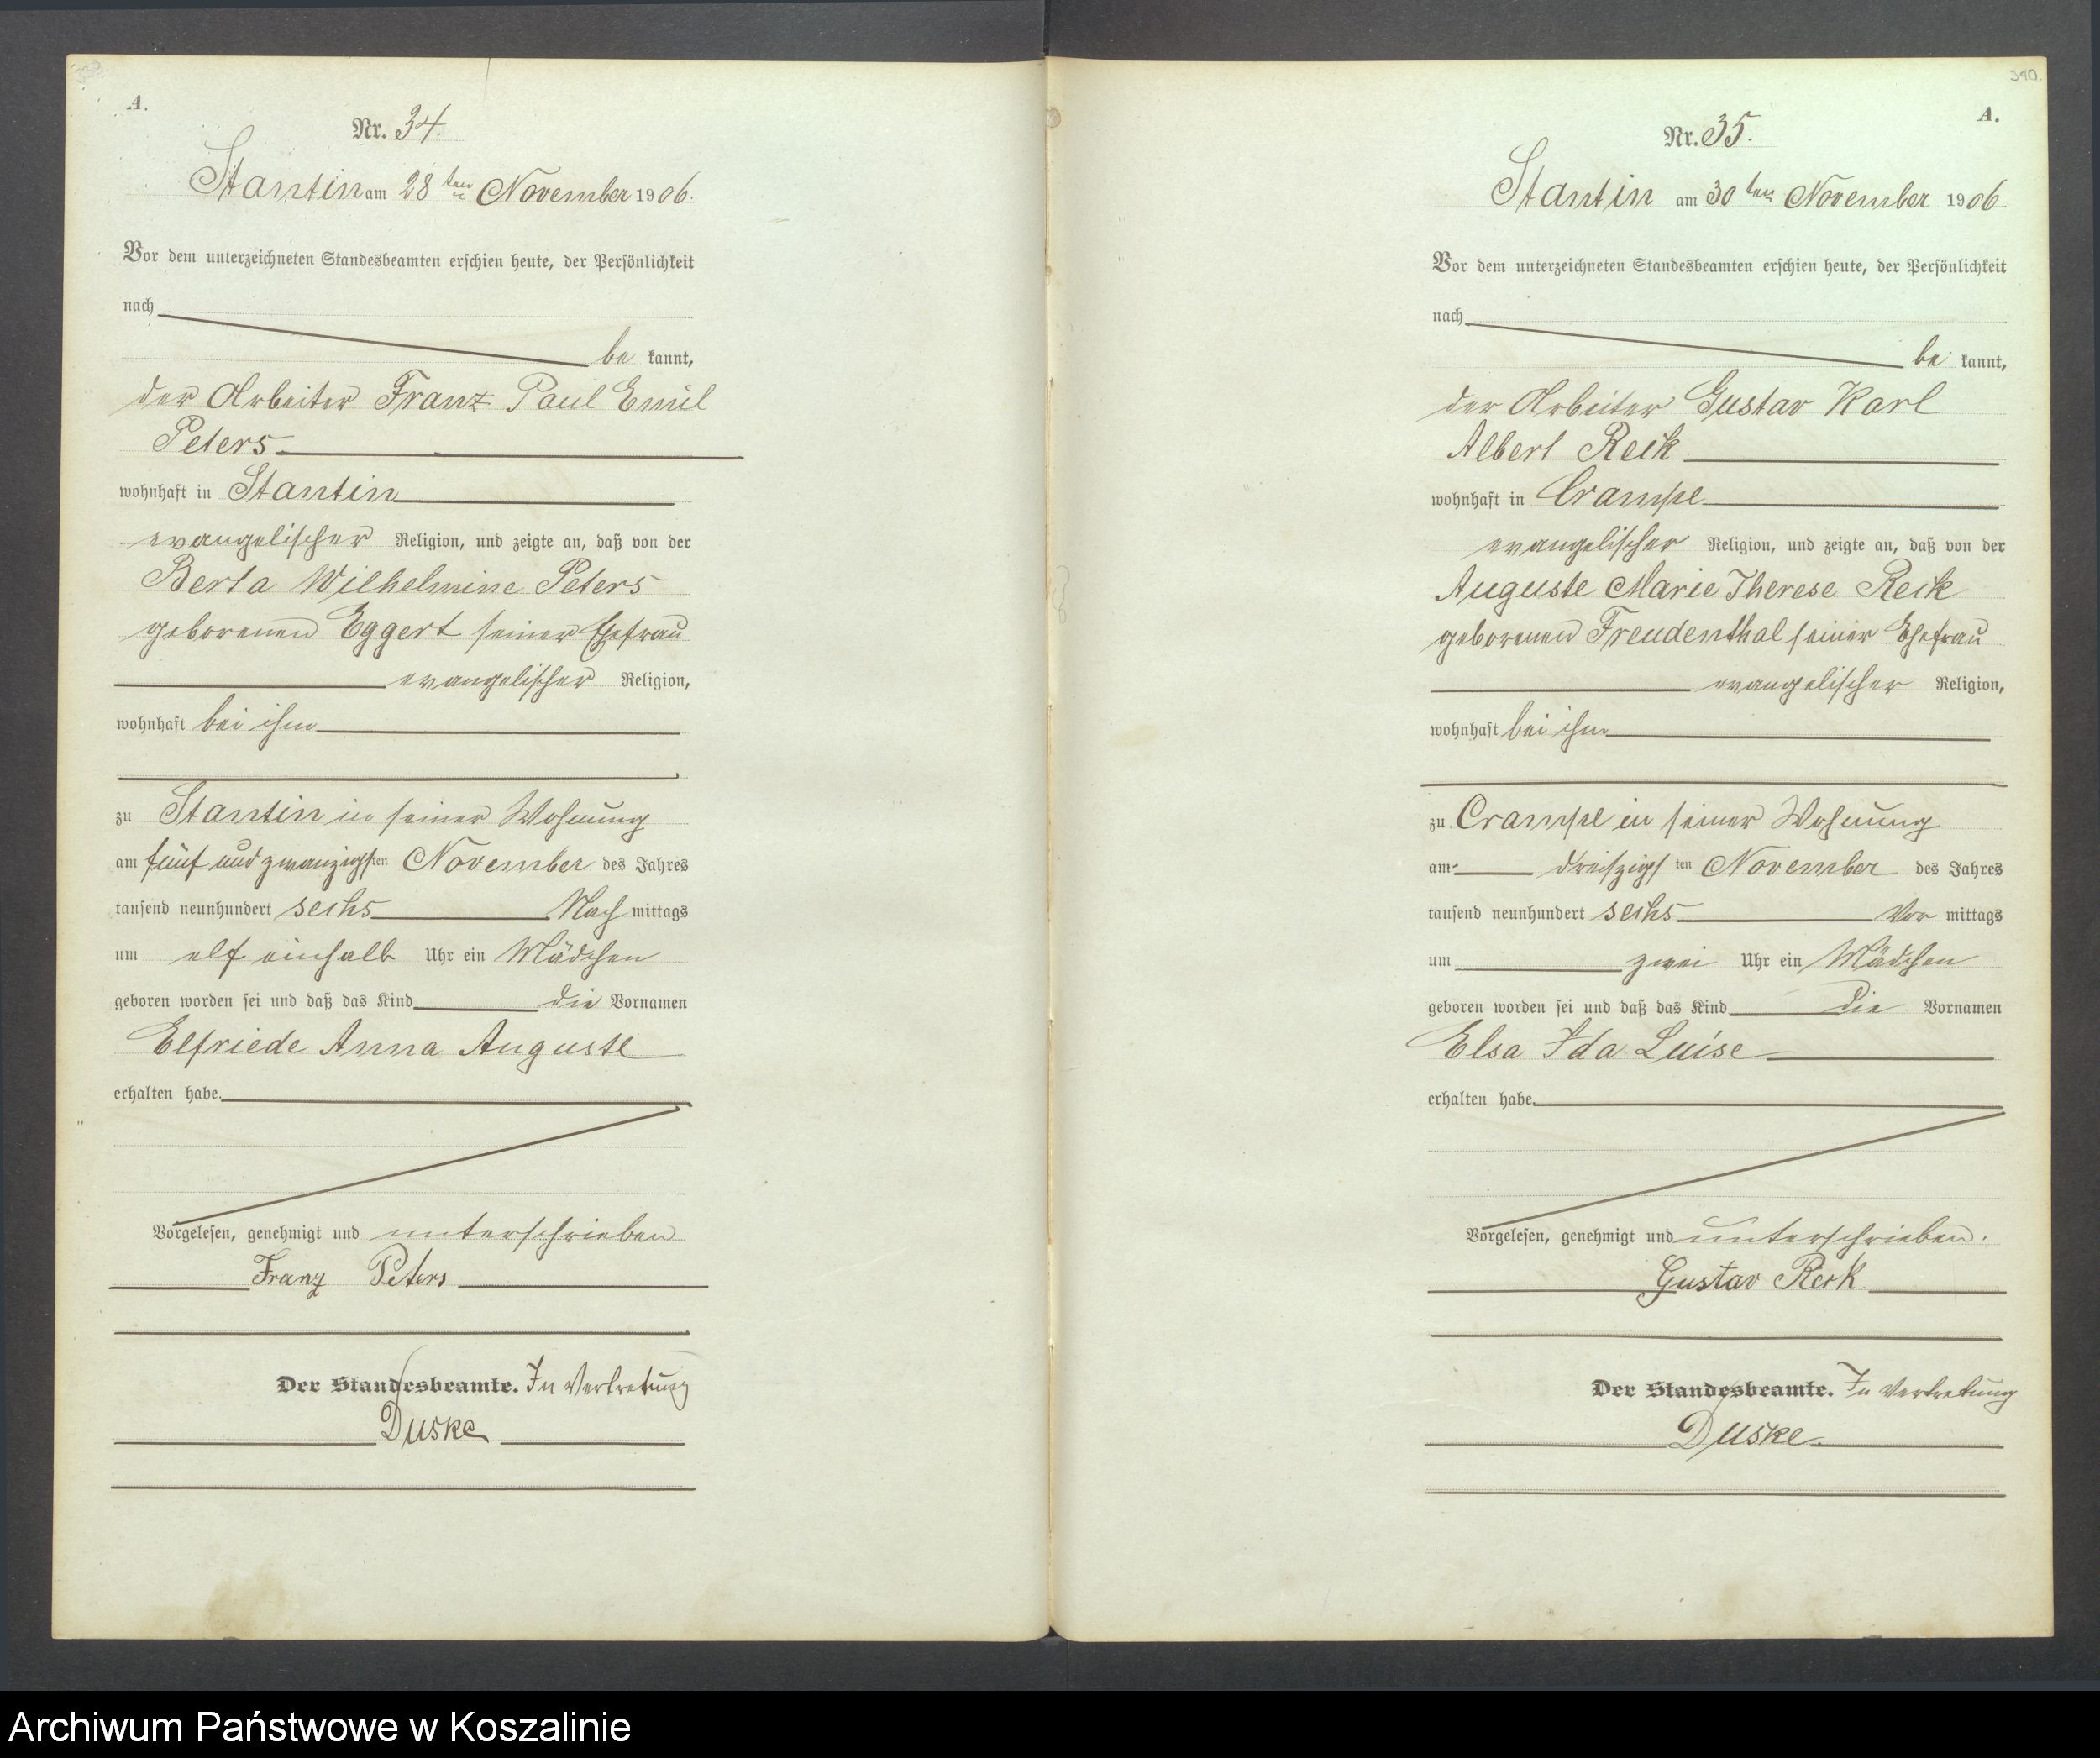 A.
Nr. 34.
Stantin am 28ten November 1906.
Vor dem unterzeichneten Standesbeamten erschien heute, der Persönlichkeit
nach
be kannt,
der Arbeiter Franz Paul Emil
Peters
wohnhaft in Stantin
evangelischer Religion, und zeigte an, daß von der
Berta Wilhelmine Peters
geborenen Eggert seiner Ehefrau
evangelischer Religion,
wohnhaft bei ihm
zu Stantin in seiner Wohnung
am fünf und zwanzigsten November des Jahres
tausend neunhundert sechs Nach mittags
um elf einhalb Uhr ein Mädchen
geboren worden sei und daß das Kind die Vornamen
Elfriede Anna Auguste
erhalten habe.
Vorgelesen, genehmigt und unterschrieben
Franz Peters
Der Standesbeamte. In Vertretung
Duske
340.
A.
Nr. 35.
Stantin am 30ten November 1906
Vor dem unterzeichneten Standesbeamten erschien heute, der Persönlichkeit
nach
be kannt,
der Arbeiter Gustav Karl
Albert Reck
wohnhaft in Crampe
evangelischer Religion, und zeigte an, daß von der
Auguste Marie Therese Reck
geborenen Freudenthal seiner Ehefrau
evangelischer Religion,
wohnhaft bei ihm
zu Crampe in seiner Wohnung
am dreiszigsten November des Jahres
tausend neunhundert sechs Vor mittags
um zwei Uhr ein Mädchen
geboren worden sei und daß das Kind die Vornamen
Elsa Ida Luise
erhalten habe.
Vorgelesen, genehmigt und unterschrieben.
Gustav Reck
Der Standesbeamte. In Vertretung
Duske.
Archiwum Państwowe w Koszalinie